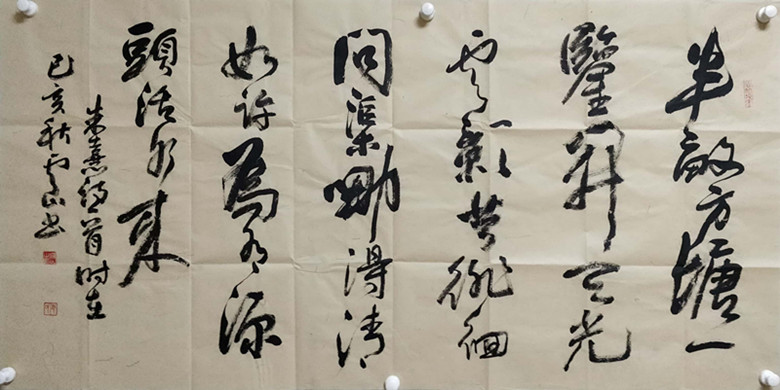 半畝方塘一
鑒開天光
雲影共徘徊
問渠哪得清
如許為有源
頭活水來
朱熹詩一首時在
己亥秋雲山書